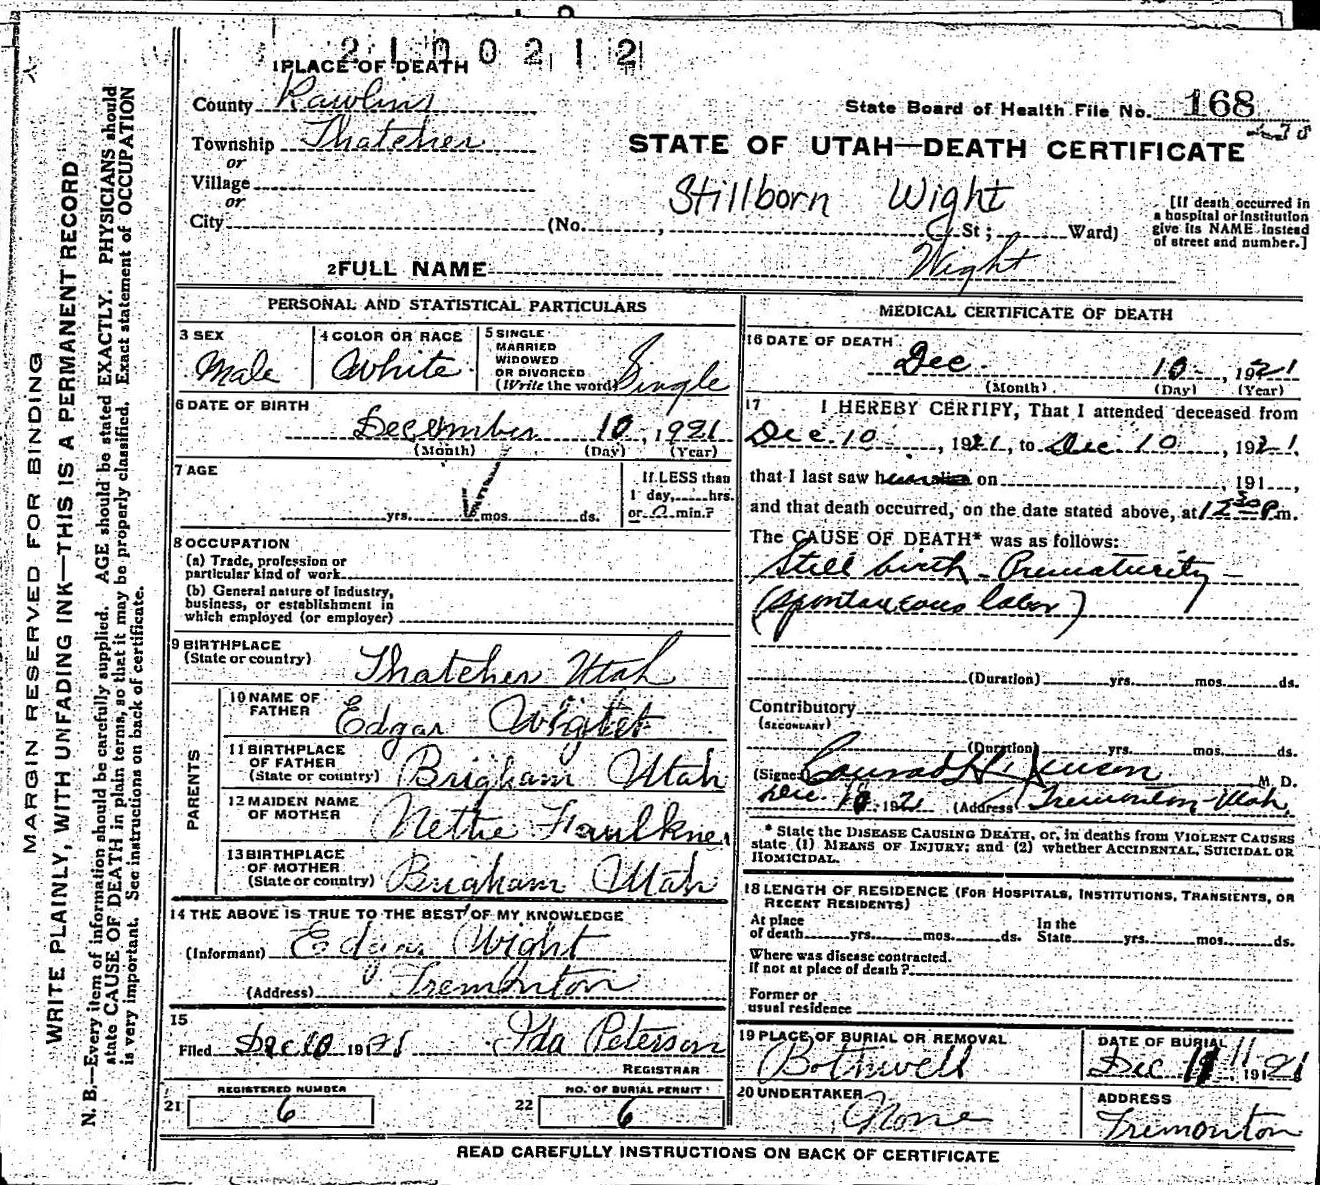 2100212
1 PLACE OF DEATH
County Rawlins
State Board of Health File No. 168
Township Thatcher
STATE OF UTAH—DEATH CERTIFICATE
or
Village
Stillborn Wight
or
City (No. , St ; Ward)
[If death occurred in
a hospital or institution
give its NAME instead
of street and number.]
2 FULL NAME Wight
PERSONAL AND STATISTICAL PARTICULARS
3 SEX
Male
4 COLOR OR RACE
White
5 SINGLE
MARRIED
WIDOWED
OR DIVORCED
(Write the word) Single
6 DATE OF BIRTH
December 10, 1921
(Month) (Day) (Year)
7 AGE
yrs. mos. ds.
If LESS than
1 day, hrs.
or 0 min.?
8 OCCUPATION
(a) Trade, profession or
particular kind of work
(b) General nature of industry,
business, or establishment in
which employed (or employer)
9 BIRTHPLACE
(State or country) Thatcher Utah
PARENTS
10 NAME OF
FATHER Edgar Wight
11 BIRTHPLACE
OF FATHER
(State or country) Brigham Utah
12 MAIDEN NAME
OF MOTHER Nettie Faulkner
13 BIRTHPLACE
OF MOTHER
(State or country) Brigham Utah
14 THE ABOVE IS TRUE TO THE BEST OF MY KNOWLEDGE
(Informant) Edgar Wight
(Address) Tremonton
15
Filed Dec 10 1921 Ida Peterson
REGISTRAR
REGISTERED NUMBER
21 6
NO. OF BURIAL PERMIT
22 6
MEDICAL CERTIFICATE OF DEATH
16 DATE OF DEATH
Dec. 10, 1921
(Month) (Day) (Year)
17 I HEREBY CERTIFY, That I attended deceased from
Dec. 10, 1921, to Dec. 10, 1921.
that I last saw h on , 191 ,
and that death occurred, on the date stated above, at 12 30 P.m.
The CAUSE OF DEATH* was as follows:
Still birth - Prematurity -
(spontaneous labor)
(Duration) yrs. mos. ds.
Contributory
(SECONDARY)
(Duration) yrs. mos. ds.
(Signed) Conrad H. Jenson M. D.
Dec. 10, 1921 (Address) Tremonton, Utah,
* State the DISEASE CAUSING DEATH, or, in deaths from VIOLENT CAUSES
state (1) MEANS OF INJURY; and (2) whether ACCIDENTAL, SUICIDAL OR
HOMICIDAL.
18 LENGTH OF RESIDENCE (FOR HOSPITALS, INSTITUTIONS, TRANSIENTS, OR
RECENT RESIDENTS)
At place
of death yrs. mos. ds.
In the
State yrs. mos. ds.
Where was disease contracted.
If not at place of death?
Former or
usual residence
19 PLACE OF BURIAL OR REMOVAL
Bothwell
DATE OF BURIAL
Dec 11 11, 1921
20 UNDERTAKER
None
ADDRESS
Tremonton
READ CAREFULLY INSTRUCTIONS ON BACK OF CERTIFICATE
MARGIN RESERVED FOR BINDING
WRITE PLAINLY, WITH UNFADING INK—THIS IS A PERMANENT RECORD
N. B.—Every item of information should be carefully supplied. AGE should be stated EXACTLY. PHYSICIANS should
state CAUSE OF DEATH in plain terms, so that it may be properly classified. Exact statement of OCCUPATION
is very important. See instructions on back of certificate.